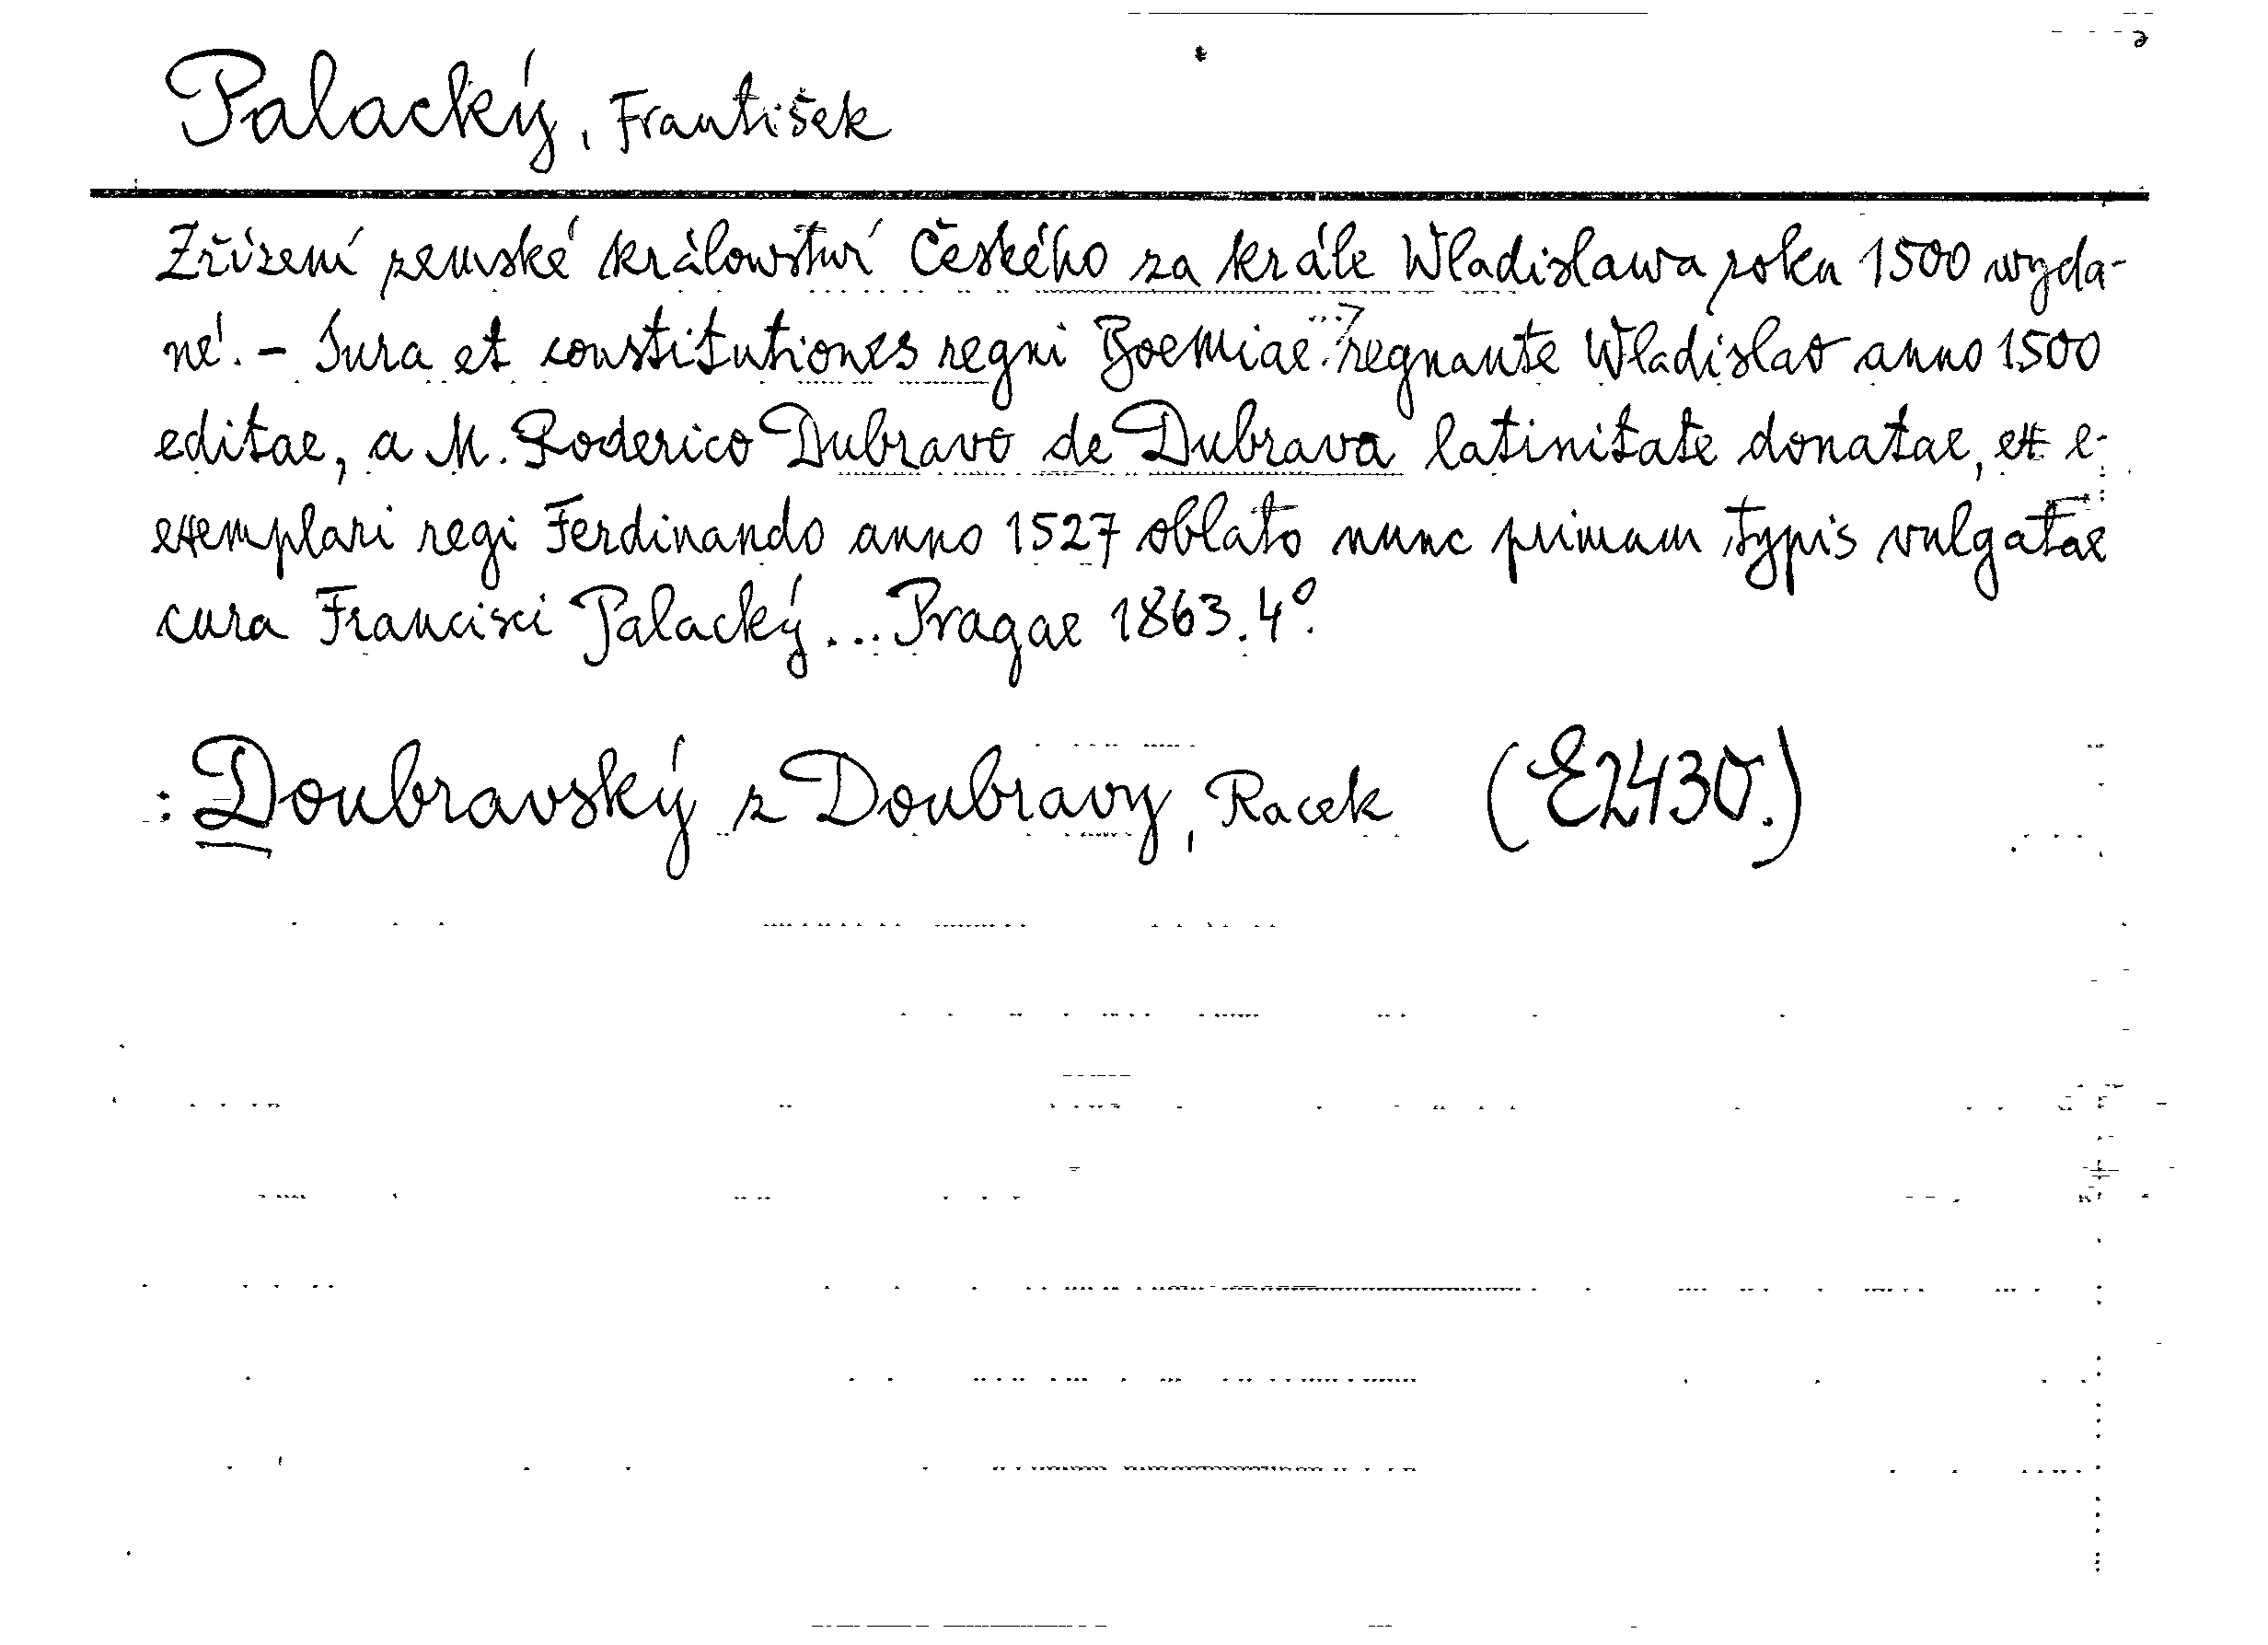 Palacký, František
Zřízení zemské králowstwí Českého za krále Wladislawa roku 1500 wyda-
né. - Jura et constitutiones regni Boemiae regnante Wladislao anno 1500
editae, a M. Roderico Dubravo de Dubrava latinitate donatae, ex e-
exemplari regi Ferdinando anno 1527 oblato nunc primum typis vulgatae
cura Francisci Palacký... Pragae 1863. 4º.
: Doubravský z Doubravy, Racek (E2430.)